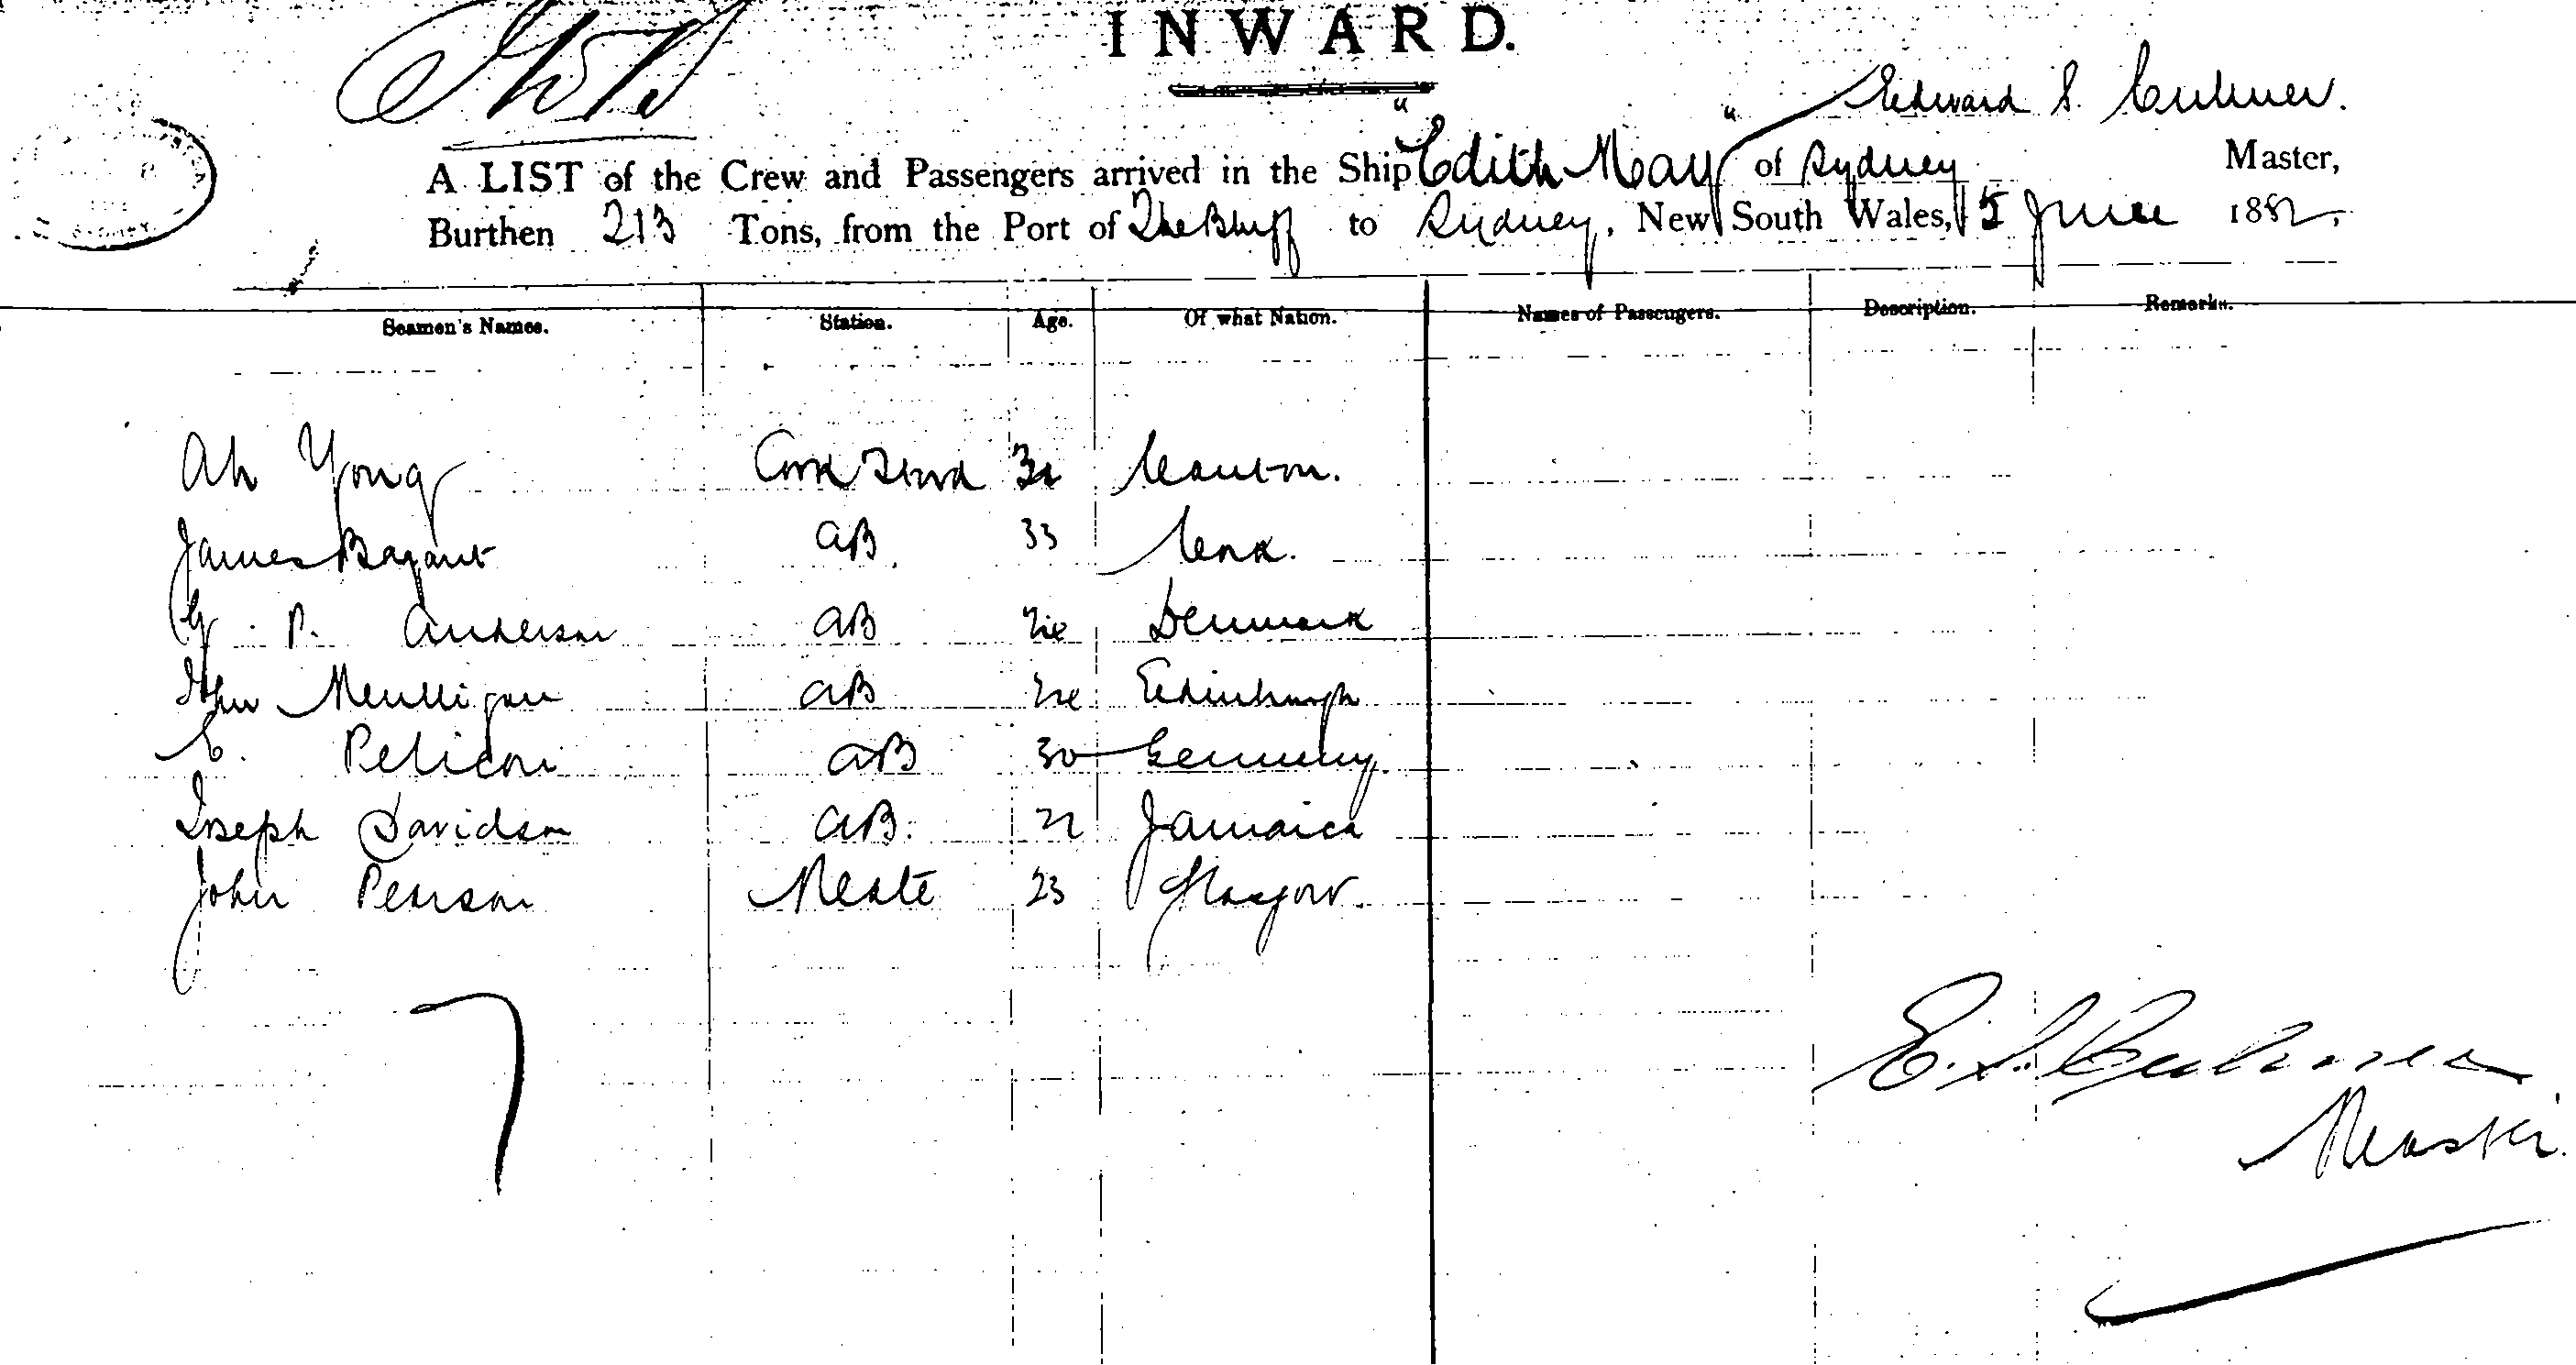 INWARD.
Edward S.
A LIST of the Crew and Passengers arrived in the Ship "Edith May" of Sydney Master,
Burthen 213 Tons, from the Port of The Bluff to Sydney, New South Wales, 5 June 1882,
Seamen's Names. Station. Age. Of what Nation. Names of Passengers. Description. Remarks.
Ah Yong Cook Stwd Canton.
James AB 33 Cork.
G. P. Anderson AB Denmark
John Mulligan AB Edinburgh
C. Pelican AB 30 Germany
Joseph Davidson AB. 22 Jamaica
John Pearson Mate 23 Glasgow.
7
E. S.
Master.